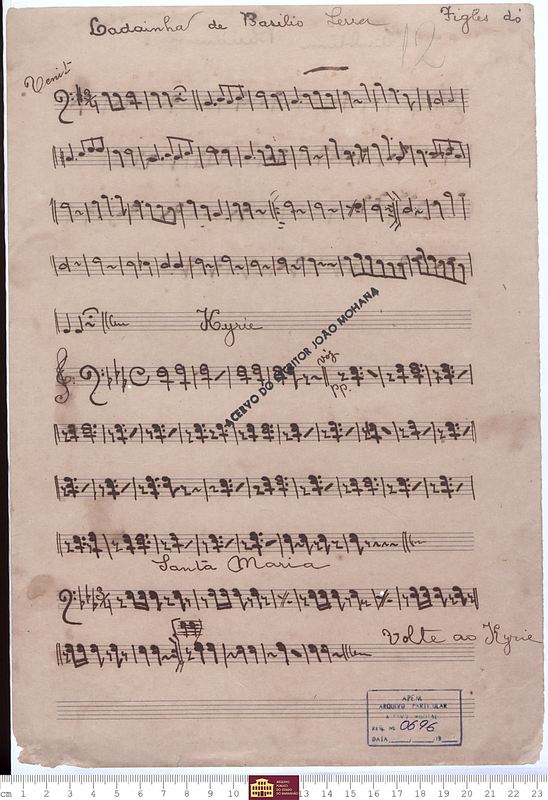 Ladainha de Basilio Serra Figles dó
12
Venit
Kyrie
ACERVO DO ESCRITOR JOÃO MOHANA
voz
pp.
Santa Maria
Volte ao Kyrie
APEM
ARQUIVO PARTICULAR
REG. Nº 0696
DATA 19
cm 1 2 3 4 5 6 7 8 9 10 13 14 15 16 17 18 19 20 21 22 23